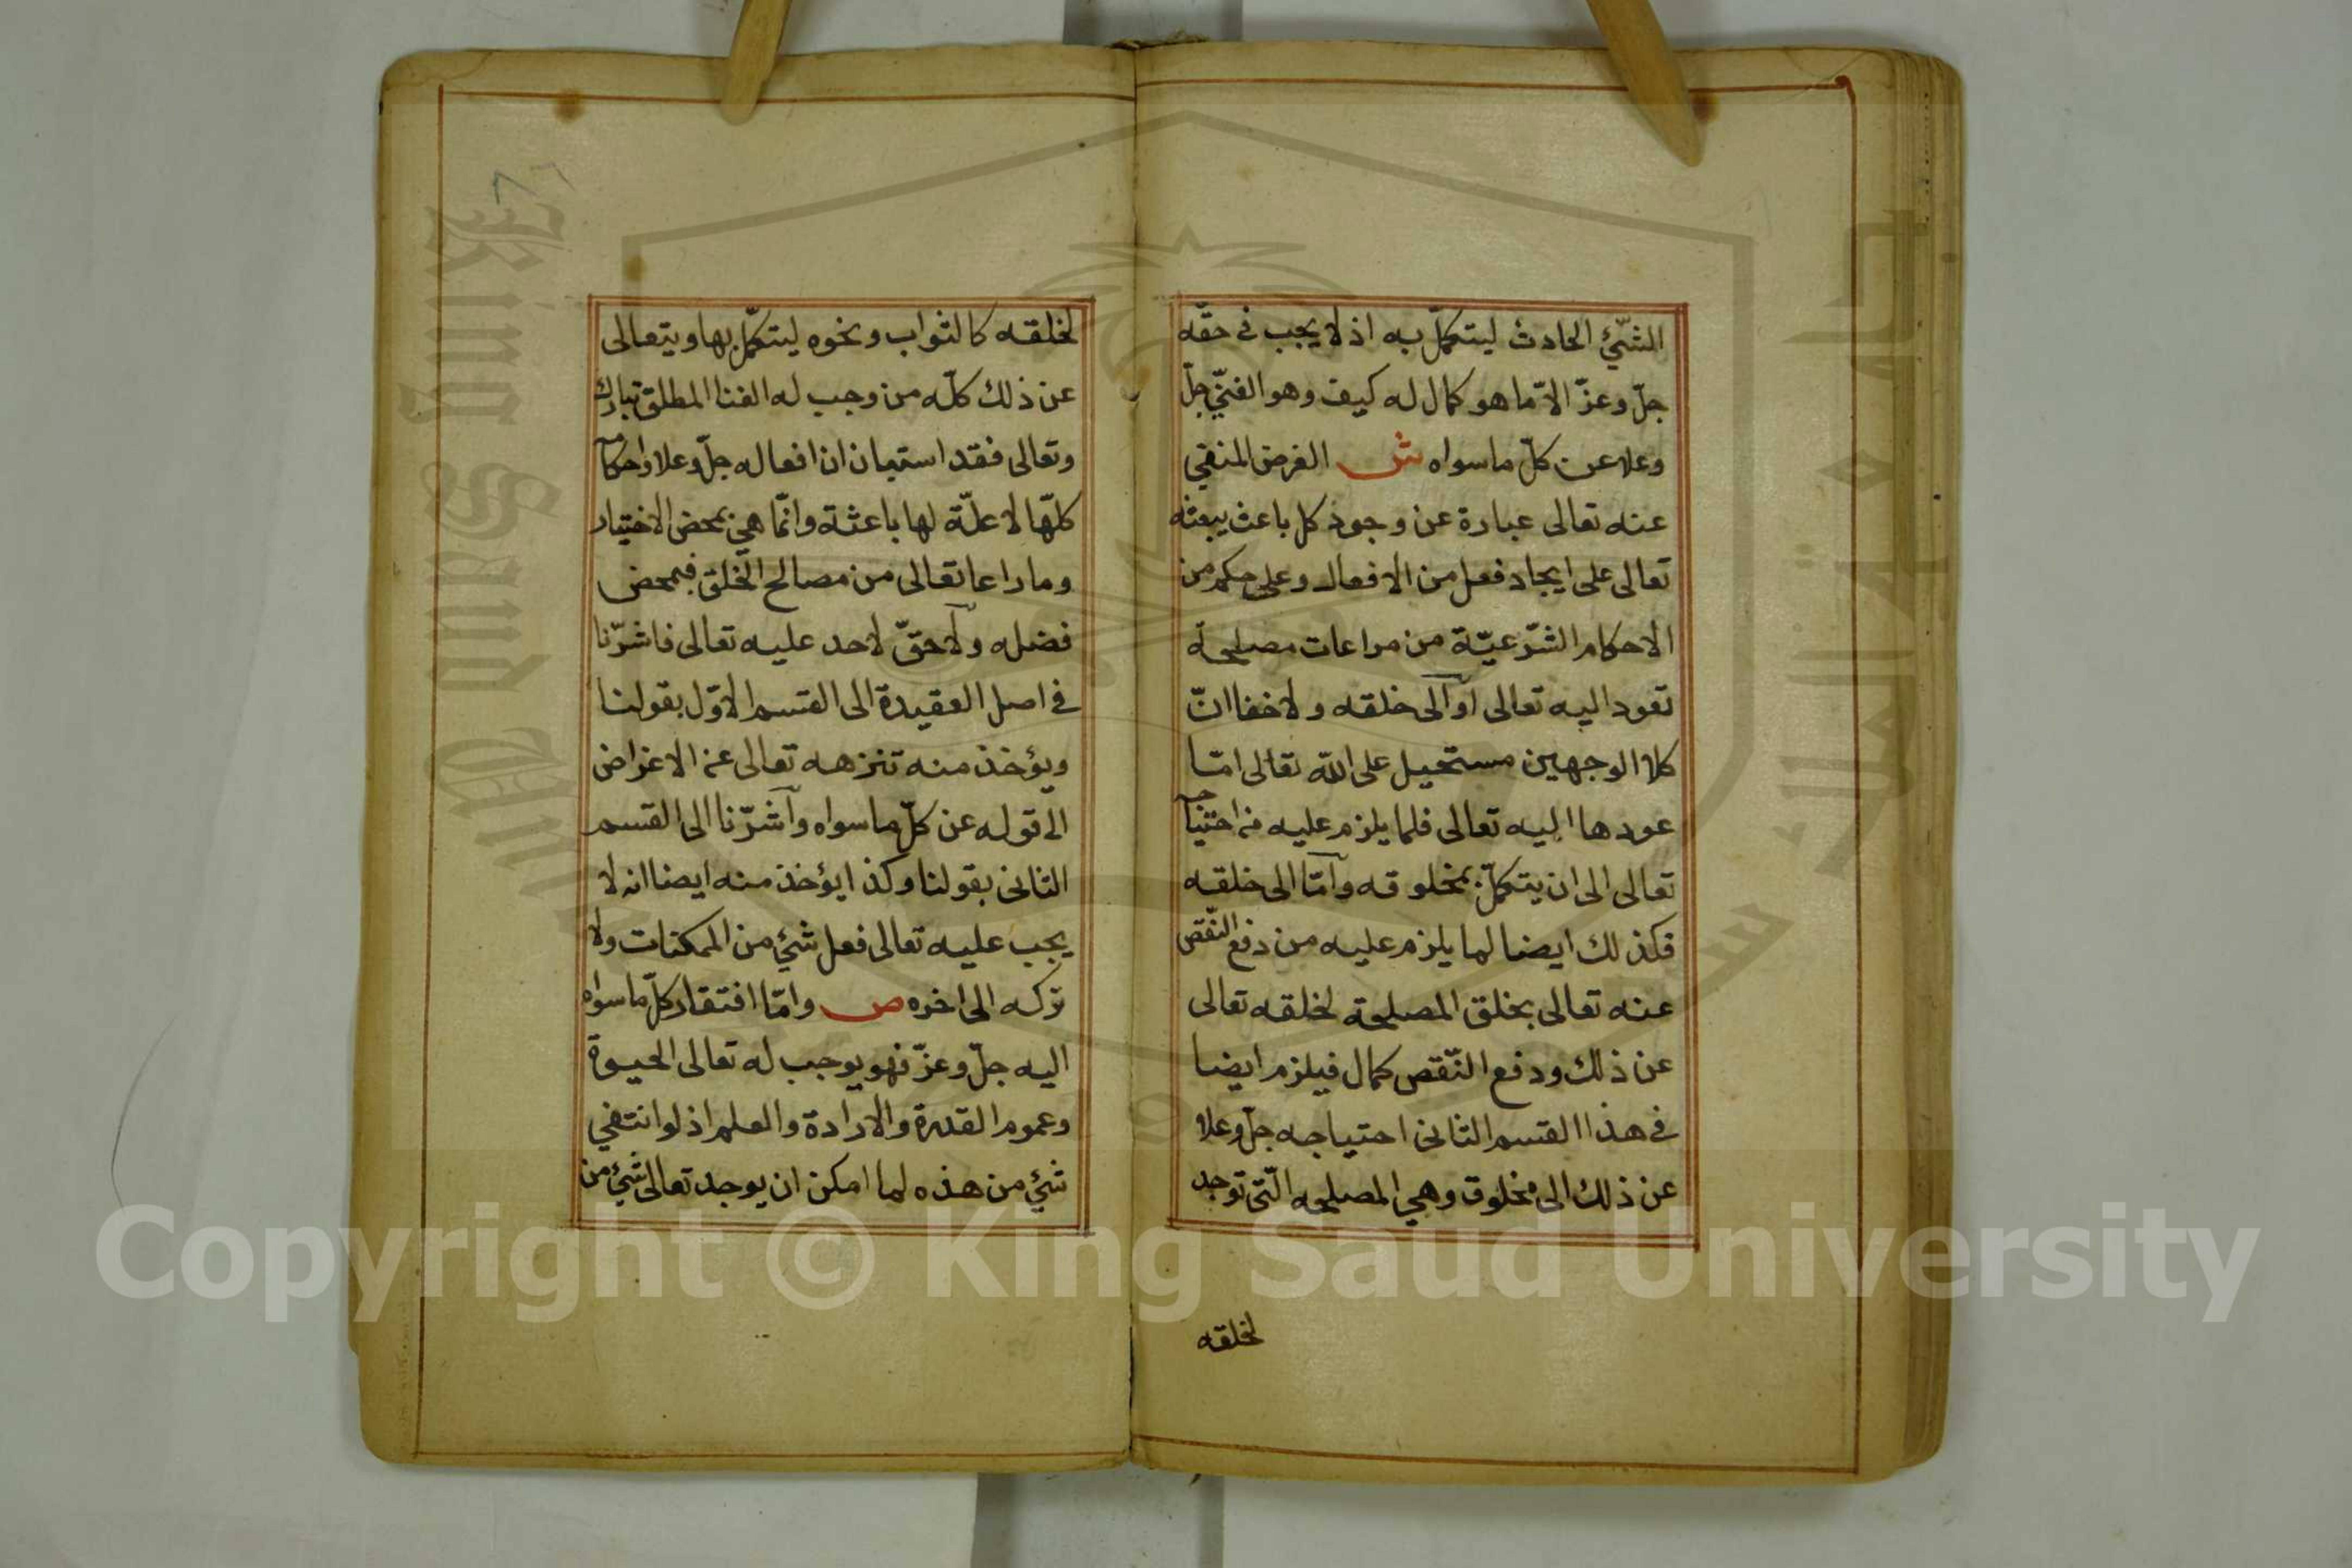 الشّئ الحادث ليتكمّل به اذ لا يجب في حقّه
جلّ وعزّ الاّ ما هو كمال له كيف وهو الغنيّ جلّ
وعلا عن كلّ ما سواه ش الغرض المنفي
عنه تعالى عبارة عن وجود كل باعث يبعثه
تعالى على ايجاد فعل من الافعال وعلى حكم من
الاحكام الشّرعيّة من مراعات مصلحة
تعود اليه تعالى او الى خلقه ولا خفا انّ
كلا الوجهين مستحيل على الله تعالى امّا
عودها اليه تعالى فلما يلزم عليه من احتياجه
تعالى الى ان يتكمّل بمخلوقه وامّا الى خلقه
فكذلك ايضا لما يلزم عليه من دفع النّقص
عنه تعالى بخلق المصلحة لخلقه تعالى
عن ذلك ودفع النّقص كمال فيلزم ايضا
في هذا القسم الثانى احتياجه جلّ وعلا
عن ذلك الى مخلوق وهي المصلحه الّتى توجد
لخلقه
لخلقه كالثواب ونحوه ليتكمّل بها ويتعالى
عن ذلك كلّه من وجب له الغنا المطلق تبارك
وتعالى فقد استبان ان افعاله جلّ وعلا واحكامه
كلّها لا علّة لها باعثة وانّما هي بمحض الاختيار
وما راعا تعالى من مصالح الخلق فبمحض
فضله ولا حقّ لاحد عليه تعالى فاشرّنا
في اصل العقيدة الى القسم الاوّل بقولنا
ويؤخذ منه تنزهه تعالى عن الاغراض
الى قوله عن كلّ ما سواه واشرّنا الى القسم
الثانى بقولنا وكذا يؤخذ منه ايضا انه لا
يجب عليه تعالى فعل شئ من الممكنات ولا
تركه الى اخره ص وامّا افتقار كلّ ما سواه
اليه جلّ وعزّ فهو يوجب له تعالى الحيوة
وعموم القدرة والارادة والعلم اذ لو انتفي
شئ من هذه لما امكن ان يوجد تعالى شئ من
Copyright © King Saud University
King Saud